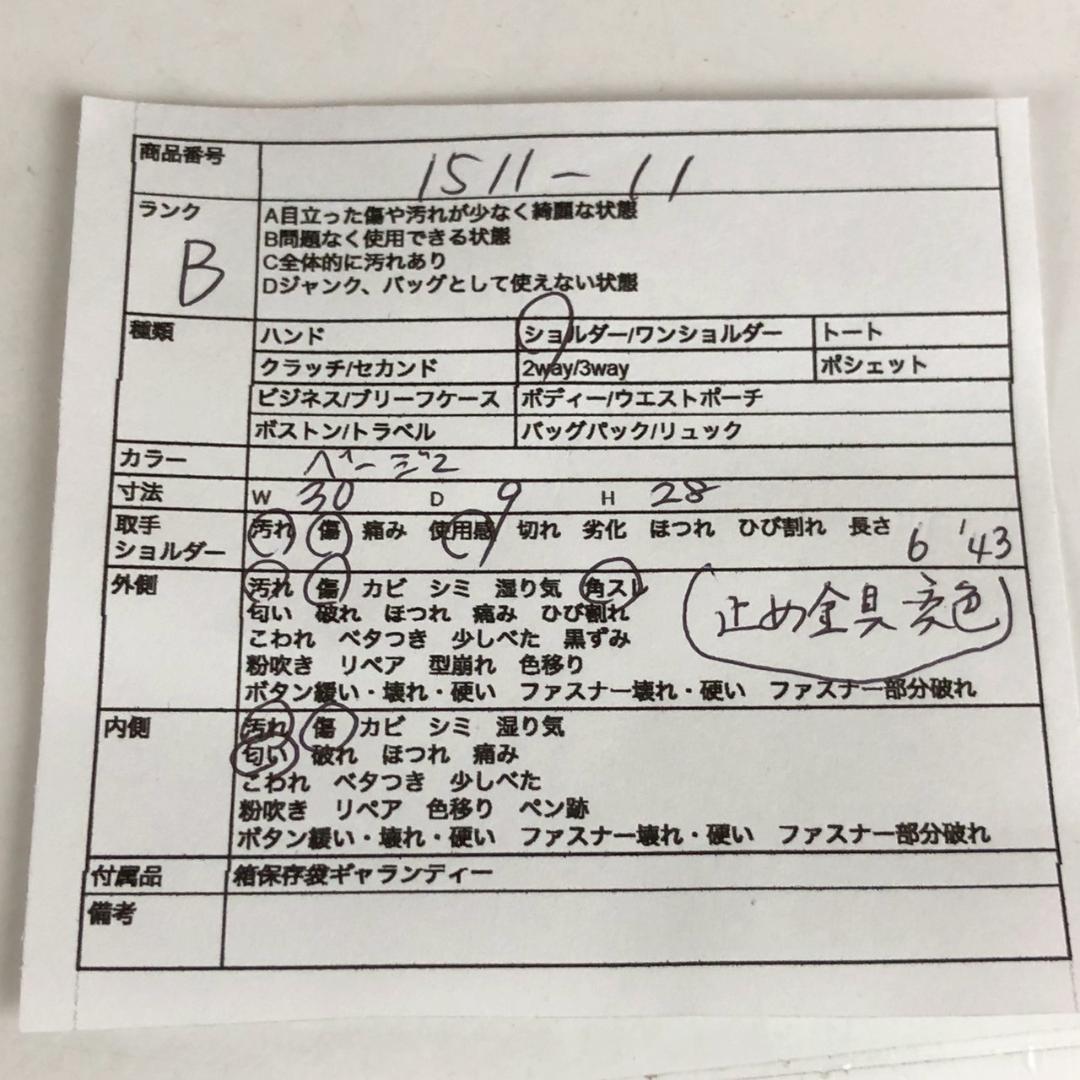 商品番号 1511-11
ランク B
A目立った傷や汚れが少なく綺麗な状態
B問題なく使用できる状態
C全体的に汚れあり
Dジャンク、バッグとして使えない状態
種類 ハンド ショルダー/ワンショルダー トート
クラッチ/セカンド 2way/3way ポシェット
ビジネス/ブリーフケース ボディー/ウエストポーチ
ボストン/トラベル バッグパック/リュック
カラー
寸法 W 30 D 9 H 28
取手 汚れ 傷 痛み 使用感 切れ 劣化 ほつれ ひび割れ 長さ 6 '43
ショルダー
外側 汚れ 傷 カビ シミ 湿り気 角スレ
匂い 破れ ほつれ 痛み ひび割れ
(止め金具変色)
こわれ ベタつき 少しべた 黒ずみ
粉吹き リペア 型崩れ 色移り
ボタン緩い・壊れ・硬い ファスナー壊れ・硬い ファスナー部分破れ
内側 汚れ 傷 カビ シミ 湿り気
匂い 破れ ほつれ 痛み
こわれ ベタつき 少しべた
粉吹き リペア 色移り ペン跡
ボタン緩い・壊れ・硬い ファスナー壊れ・硬い ファスナー部分破れ
付属品 箱保存袋ギャランティー
備考